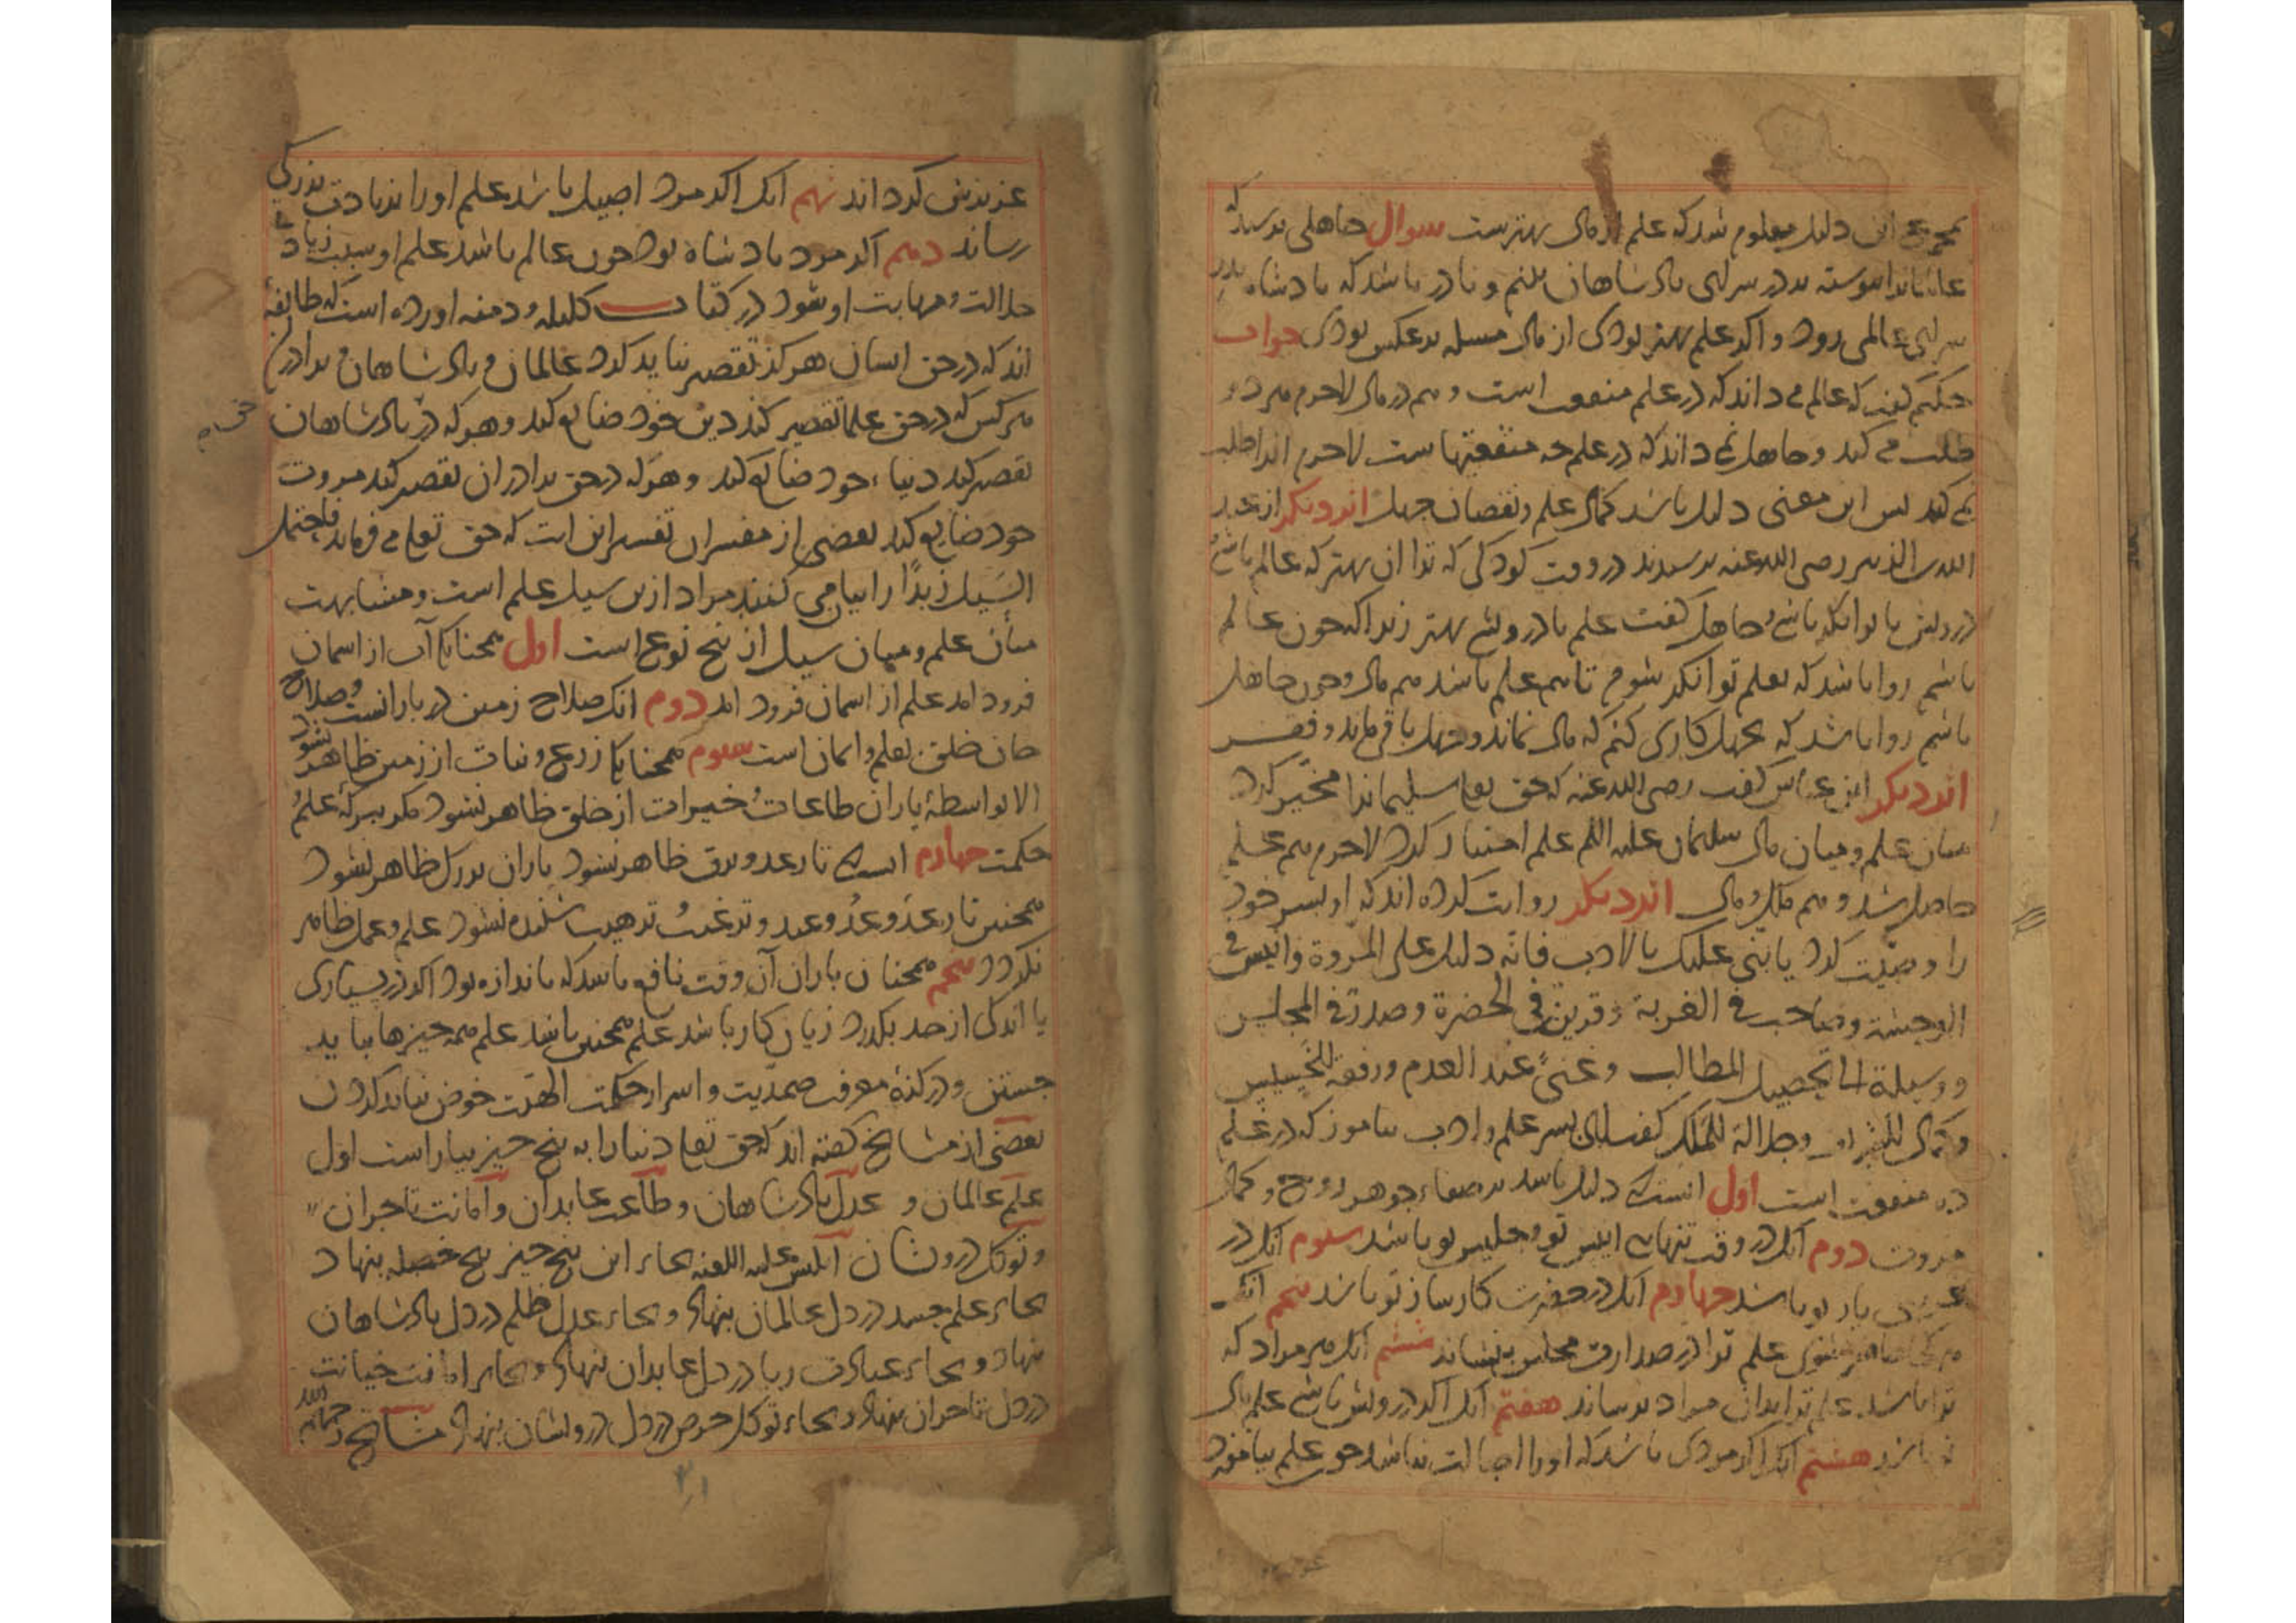 این دلیل معلوم شد که علم از مال بهترست سوال جاهلی پرسید که
عالمانرا پیوسته بر در سرای پادشاهان بینم و نادر باشد که پادشاه بدر
سرای عالمی رود و اگر علم بهتر بودی از مال مسله بر عکس بودی جواب
حکیم گفت که عالم می داند که در علم منفعت است و هم در مال لاجرم هر دو
طلب می کند و جاهل نمی داند که در علم چه منفعتهاست لاجرم انرا طلب
نمی کند پس این معنی دلیل باشد کمال علم و نقصان جهل اثر دیگر از عبد
الله بن الزبیر رضی الله عنه پرسیدند در وقت کودکی که ترا ان بهتر که عالم باشی
درویش یا توانگر باشی و جاهل گفت علم با درویشی بهتر زیرا که چون عالم
باشم روا باشد که بعلم توانگر شوم تا هم علم باشد هم مال و چون جاهل
باشم روا باشد که بجهل کاری کنم که مال نماند و جهل باقی ماند و فقر
اثر دیگر ابن عباس گفت رضی الله عنه که حق تعا سلیمانرا مخیر کرد
میان علم و میان مال سلیمان علیه السلم علم اختیار کرد لاجرم هم علم
حاصل شد و هم ملک و مال اثر دیگر روایت کرده اند که او پسر خود
را وصیت کرد یا بنی علیک بالادب فانه دلیل علی المروة وانیس فی
الوحشة وصاحب فی الغربة وقرین فی الحضرة وصدر فی المجلس
ووسیلة الی تحصیل المطالب وغنی عند العدم ورفعة للخسیس
وکمال للشریف وجلالة للملک گفت ای پسر علم و ادب بیاموز که در علم
ده منفعت است اول انست که دلیل باشد بر صفاء جوهر روح و کمال
مروت دوم انک در وقت تنهایی انیس تو و جلیس تو باشد سوم انک در
غریبی یار تو باشد چهارم انک در حضرت کارساز تو باشد پنجم انک
هر کجا حاضر شوی علم ترا در صدارت مجلس بنشاند ششم انک هر مراد که
ترا باشد علم ترا بدان مراد برساند هفتم انک اگر درویش باشی علم مال
تو باشد هشتم انک اگر مردی باشد که او را اصالت نباشد چو علم بیاموزد
عزیزش کرداند نهم انک اکر مرد اصیل باشد علم او را بزیادت بزرکی
رساند دهم اکر مرد پادشاه بود چون عالم باشد علم او سبب زیاد
جلالت و مهابت او شود در کتاب کلیله و دمنه اورده است که طایفهٔ
اند که در حق ایشان هرکز تقصیر نباید کرد عالمان و پادشاهان و برادران
هر کس که در حق علما تقصیر کند دین خود ضایع کند و هر که در پادشاهان
تقصیر کند دنیاء خود ضایع کند و هر که در حق برادران تقصیر کند مروت
خود ضایع کند بعضی از مفسران تفسیر این ایت که حق تعا می فرماید فاحتمل
السیل زبدًا رابیا می کنند مراد ازین سیل علم است و مشابهت
میان علم و میان سیل از پنج نوع است اول همچنانک آب از اسمان
فرود امد علم از اسمان فرود امد دوم انک صلاح زمین در بارانست و صلاح
جان خلق بعلم و ایمان است سیوم همچنانک زرع و نبات از زمین ظاهر نشود
الا بواسطهٔ باران طاعات و خیرات از خلق ظاهر نشود مکر ببرکهٔ علم و
حکمت چهارم انست که تا رعد و برق ظاهر نشود باران بر کل ظاهر نشود
همچنین تا رعد وعد و وعید و ترغیب و ترهیب شنیده نشود علم و عمل ظاهر
نکردد پنجم همچنان باران آن وقت نافع باشد که باندازه بود اکر در بسیاری
یا اندکی از حد بکذرد زیان کار باشد علم همچنین باشد علم همه چیزها بباید
جستن و در کنه معرفت صمدیت و اسرار حکمت الهیت خوض نباید کردن
بعضی از مشایخ کفته اند که حق تعا دنیا را به پنج چیز بیاراست اول
علم عالمان و عدل پادشاهان و طاعت عابدان و آمانت تاجران
و توکل درویشان ابلیس علیه اللعنه بجاء این پنج چیز پنج خصله بنهاد
بجاء علم حسد در دل عالمان بنهاد و بجاء عدل ظلم در دل پادشاهان
بنهاد و بجاء عبادت ریا در دل عابدان بنهاد و بجاء امانت خیانت
در دل تاجران بنهاد و بجاء توکل حرص در دل درویشان بنهاد مشایخ رحمهم الله